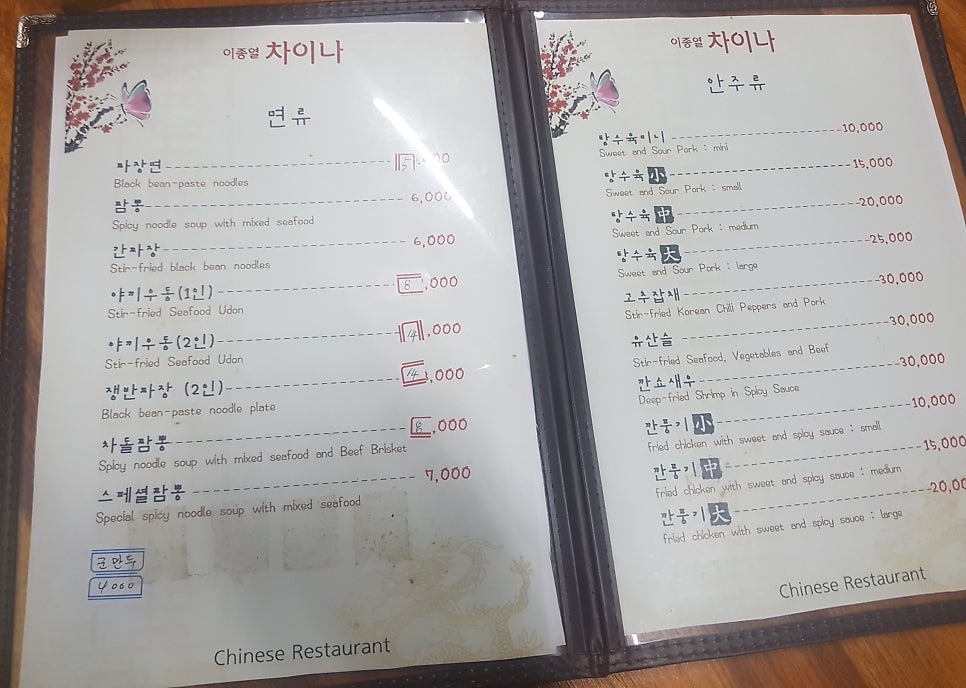 이종열 차이나
면류
짜장면 5,000
Black bean-paste noodles
짬뽕 6,000
Spicy noodle soup with mixed seafood
간짜장 6,000
Stir-fried black bean noodles
야끼우동(1인) 8,000
Stir-fried Seafood Udon
야끼우동(2인) 14,000
Stir-fried Seafood Udon
쟁반짜장 (2인) 14,000
Black bean-paste noodle plate
차돌짬뽕 8,000
Spicy noodle soup with mixed seafood and Beef Brisket
스페셜짬뽕 7,000
Special spicy noodle soup with mixed seafood
군만두
4000
Chinese Restaurant
이종열 차이나
안주류
탕수육미니 10,000
Sweet and Sour Pork : mini
탕수육 小 15,000
Sweet and Sour Pork : small
탕수육 中 20,000
Sweet and Sour Pork : medium
탕수육 大 25,000
Sweet and Sour Pork : large
고추잡채 30,000
Stir-fried Korean Chili Peppers and Pork
유산슬 30,000
Stir-fried Seafood, Vegetables and Beef
깐쇼새우 30,000
Deep-fried Shrimp in Spicy Sauce
깐풍기 小 10,000
fried chicken with sweet and spicy sauce : small
깐풍기 中 15,000
fried chicken with sweet and spicy sauce : medium
깐풍기 大 20,00
fried chicken with sweet and spicy sauce : large
Chinese Restaurant